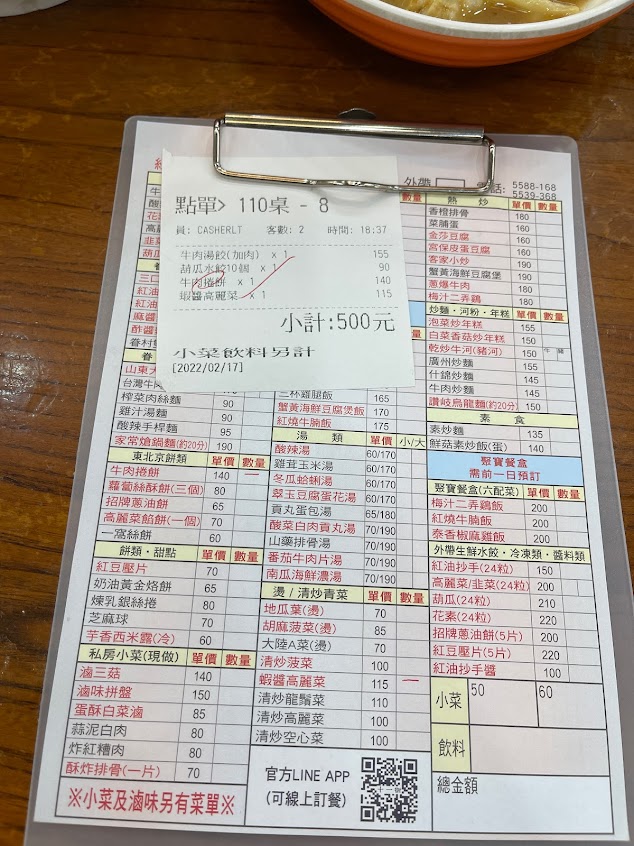 點單> 110桌 - 8
員: CASHERLT 客數: 2 時間: 18:37
牛肉湯餃(加肉) x 1 155
葫瓜水餃10個 x 1 90
牛肉捲餅 x 1 140
蝦醬高麗菜 x 1 115
小計:500元
小菜飲料另計
[2022/02/17]
外帶 電話: 5588-168
5539-368
熱 炒 單價 數量
香橙排骨 180
菜脯蛋 160
金莎豆腐 180
宮保皮蛋豆腐 180
客家小炒 190
蟹黃海鮮豆腐煲 190
蔥爆牛肉 180
梅汁二弄鷄 180
炒麵・河粉・年糕 單價 數量
泡菜炒年糕 155
白菜香菇炒年糕 155
乾炒牛河(豬河) 150
廣州炒麵 155
什錦炒麵 145
牛肉炒麵 145
讚岐烏龍麵(約20分) 150
素 食
素炒麵 135
鮮菇素炒飯(蛋) 140
聚寶餐盒
需前一日預訂
聚寶餐盒(六配菜) 單價 數量
梅汁二弄鷄飯 200
紅燒牛腩飯 200
泰香椒麻雞飯 200
外帶生鮮水餃・冷凍類・醬料類
紅油抄手(24粒) 150
高麗菜/韭菜(24粒) 200
葫瓜(24粒) 210
花素(24粒) 220
招牌蔥油餅(5片) 200
紅豆壓片(5片) 220
紅油抄手醬 100
小菜 50 60
飲料
總金額
山東大
台灣牛肉
榨菜肉絲麵 90
雞汁湯麵 90
酸辣手桿麵 95
家常熗鍋麵(約20分) 190
東北京餅類 單價 數量
牛肉捲餅 140 一
蘿蔔絲酥餅(三個) 80
招牌蔥油餅 65
高麗菜餡餅(一個) 70
一窩絲餅 60
餅類・甜點 單價 數量
紅豆壓片 70
奶油黃金烙餅 65
煉乳銀絲捲 80
芝麻球 70
芋香西米露(冷) 60
私房小菜(現做) 單價 數量
滷三菇 140
滷味拼盤 150
蛋酥白菜滷 85
蒜泥白肉 80
炸紅糟肉 80
酥炸排骨(一片) 70
※小菜及滷味另有菜單※
三杯雞腿飯 165
蟹黃海鮮豆腐煲飯 170
紅燒牛腩飯 165
湯 類 單價 小/大
酸辣湯 60/170
雞茸玉米湯 60/170
冬瓜蛤蜊湯 60/170
翠玉豆腐蛋花湯 60/170
貢丸蛋包湯 65/180
酸菜白肉貢丸湯 70/190
山藥排骨湯 70/190
番茄牛肉片湯 70/190
南瓜海鮮濃湯 70/190
燙/清炒青菜 單價 數量
地瓜葉(燙) 70
胡麻菠菜(燙) 85
大陸A菜(燙) 70
清炒菠菜 100
蝦醬高麗菜 115 一
清炒龍鬚菜 110
清炒高麗菜 100
清炒空心菜 100
官方LINE APP
(可線上訂餐)